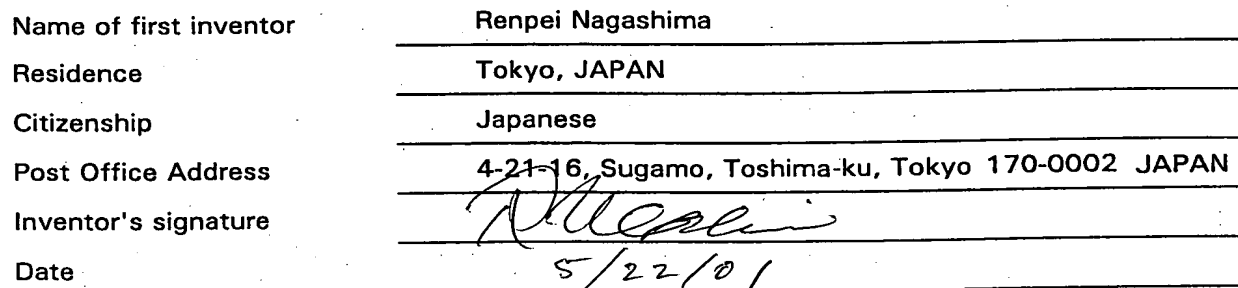 Name of first inventor Renpei Nagashima
Residence Tokyo, JAPAN
Citizenship Japanese
Post Office Address 4-21-16, Sugamo, Toshima-ku, Tokyo 170-0002 JAPAN
Inventor's signature
Date 5/22/01